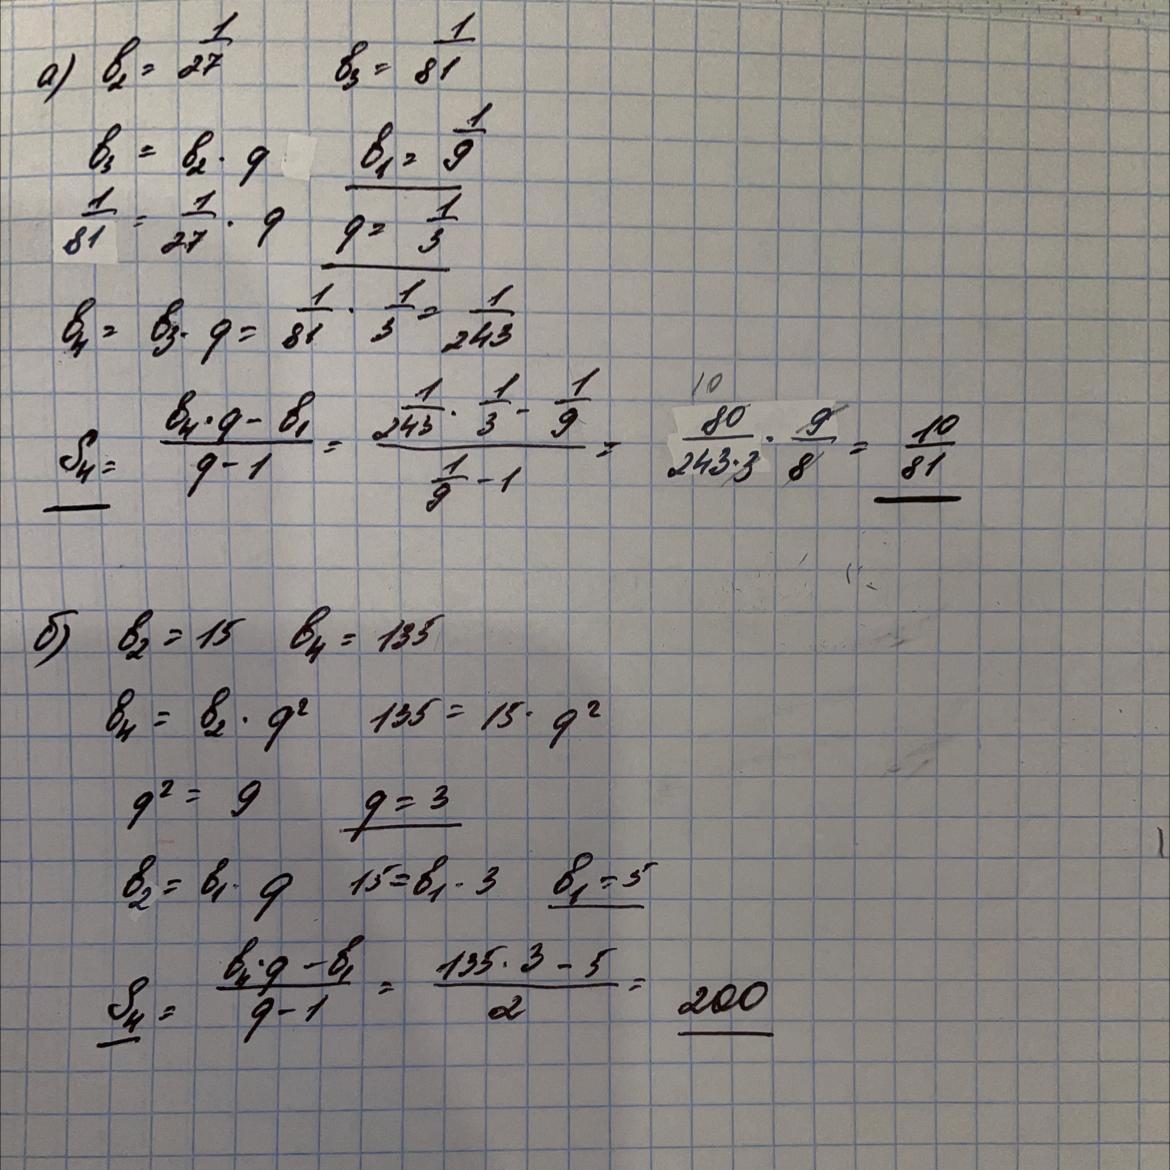 а) b₂ = 1/27 b₃ = 1/81
b₃ = b₂ · q b₁ = 1/9
1/81 = 1/27 · q q = 1/3
b₄ = b₃ · q = 1/81 · 1/3 = 1/243
S₄ = (b₄ · q - b₁)/(q - 1) = (1/243 · 1/3 - 1/9)/(1/9 - 1) = 10 80/(243·3) · 9/8 = 10/81
б) b₂ = 15 b₄ = 135
b₄ = b₂ · q² 135 = 15 · q²
q² = 9 q = 3
b₂ = b₁ · q 15 = b₁ · 3 b₁ = 5
S₄ = (b₄ · q - b₁)/(q - 1) = (135 · 3 - 5)/2 = 200